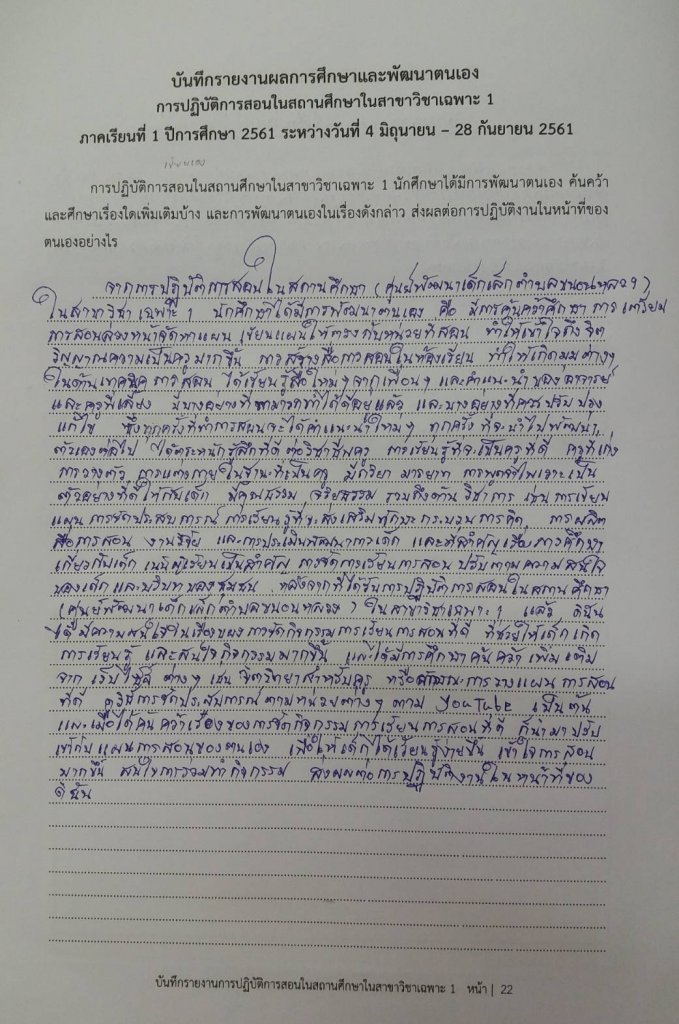 บันทึกรายงานผลการศึกษาและพัฒนาตนเอง
การปฏิบัติการสอนในสถานศึกษาในสาขาวิชาเฉพาะ 1
ภาคเรียนที่ 1 ปีการศึกษา 2561 ระหว่างวันที่ 4 มิถุนายน – 28 กันยายน 2561
การปฏิบัติการสอนในสถานศึกษาในสาขาวิชาเฉพาะ 1 นักศึกษาได้มีการพัฒนาตนเอง ค้นคว้า
และศึกษาเรื่องใดเพิ่มเติมบ้าง และการพัฒนาตนเองในเรื่องดังกล่าว ส่งผลต่อการปฏิบัติงานในหน้าที่ของ
ตนเองอย่างไร
จากการปฏิบัติการสอนในสถานศึกษา (ศูนย์พัฒนาเด็กเล็กตำบลขนอนหลวง)
ในสาขาวิชาเฉพาะ 1 นักศึกษาได้มีการพัฒนาตนเอง คือ มีการค้นคว้าศึกษาการเตรียม
การสอนล่วงหน้าจัดหาแผน เขียนแผนให้ตรงกับหน่วยที่สอน ทำให้เข้าใจถึงจิต
วิญญาณความเป็นครูมากขึ้น การสร้างสื่อการสอนในห้องเรียน ทำให้เกิดมุมต่างๆ
ในด้านเทคนิคการสอน ได้เรียนรู้สื่อใหม่ๆจากเพื่อนๆ และคำแนะนำของอาจารย์
และครูพี่เลี้ยง มีบางอย่างที่สามารถทำได้ดีอยู่แล้ว และบางอย่างที่ควรปรับปรุง
แก้ไข ซึ่งทุกครั้งที่ทำการสอนจะได้คำแนะนำใหม่ๆ ทุกครั้ง ที่จะนำไปพัฒนา
ตัวเองต่อไป ได้ตระหนักรู้สึกที่ดีต่อวิชาชีพครู การเรียนรู้ที่จะเป็นครูที่ดี ครูที่เก่ง
การวางตัว การแต่งกายในฐานะที่เป็นครู มีกิริยา มารยาท การพูดจาไพเราะเป็น
ตัวอย่างที่ดีให้กับเด็ก มีคุณธรรม จริยธรรม รวมถึงด้านวิชาการ เช่น การเขียน
แผนการจัดประสบการณ์ การเรียนรู้ที่จะส่งเสริมทักษะกระบวนการคิด การผลิต
สื่อการสอน งานวิจัย และการประเมินพัฒนาการเด็ก และที่สำคัญเรื่องการศึกษา
เกี่ยวกับเด็ก เน้นผู้เรียนเป็นสำคัญ การจัดการเรียนการสอน ปรับตามความสนใจ
ของเด็กและบริบทของชุมชน หลังจากที่ได้รับการปฏิบัติการสอนในสถานศึกษา
(ศูนย์พัฒนาเด็กเล็กตำบลขนอนหลวง) ในสาขาวิชาเฉพาะ 1 แล้ว ดิฉัน
ได้มีความสนใจในเรื่องของการจัดกิจกรรมการเรียนการสอนที่ดี ที่ช่วยให้เด็กเกิด
การเรียนรู้ และสนใจกิจกรรมมากขึ้น และได้มีการศึกษาค้นคว้าเพิ่มเติม
จากเว็บไซต์ ต่างๆ เช่น จิตวิทยาสำหรับครู หรือ การวางแผนการสอน
ที่ดี ดูวิธีการจัดประสบการณ์ตามหน่วยต่างๆ ตาม YouTube เป็นต้น
และเมื่อได้ค้นคว้าเรื่องของการจัดกิจกรรมการเรียนการสอนที่ดี ก็นำมาปรับ
เข้ากับแผนการสอนของตนเอง เพื่อให้เด็กๆได้เรียนรู้ง่ายขึ้น เข้าใจการสอน
มากขึ้น สนใจการร่วมทำกิจกรรม ส่งผลต่อการปฏิบัติงานในหน้าที่ของ
ดิฉัน
บันทึกรายงานการปฏิบัติการสอนในสถานศึกษาในสาขาวิชาเฉพาะ 1 หน้า | 22